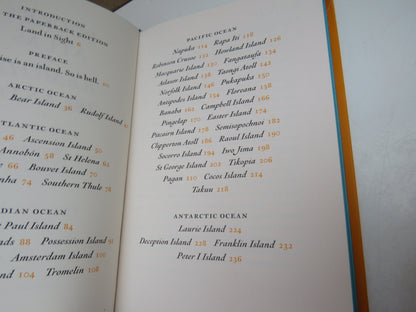 INTRODUCTION
THE PAPERBACK EDITION
Land in Sight 6
PREFACE
ise is an island. So is hell.
ARCTIC OCEAN
Bear Island 36 Rudolf Island
ATLANTIC OCEAN
46 Ascension Island 50
Annobón 58 St Helena 62
68 Bouvet Island 70
nha 74 Southern Thule 74
DIAN OCEAN
Paul Island 84
ds 88 Possession Island
Amsterdam Island 100
land 104 Tromelin 108
PACIFIC OCEAN
Napuka 114 Rapa Iti 118
Robinson Crusoe 122 Howland Island 126
Macquarie Island 130 Fangataufa 134
Atlasov Island 138 Taongi Atoll 142
Norfolk Island 146 Pukapuka 150
Antipodes Island 154 Floreana 158
Banaba 162 Campbell Island 166
Pingelap 170 Easter Island 174
Pitcairn Island 178 Semisopochnoi 182
Clipperton Atoll 186 Raoul Island 190
Socorro Island 194 Iwo Jima 198
St George Island 202 Tikopia 206
Pagan 210 Cocos Island 214
Takuu 218
ANTARCTIC OCEAN
Laurie Island 224
Deception Island 228 Franklin Island 232
Peter I Island 236